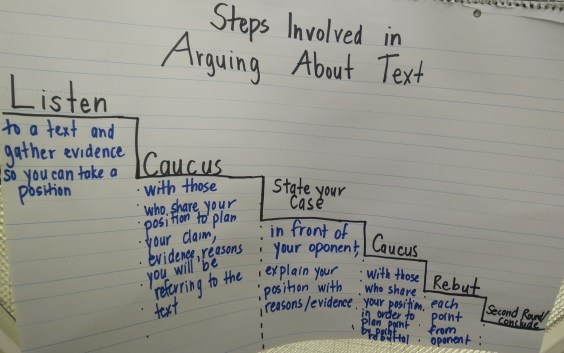 Steps Involved in
Arguing About Text
Listen
to a text and
gather evidence
so you can take a
position
Caucus
with those
who share your
position to plan
your claim,
evidence, reasons
you will be
referring to the
text
State your
Case
in front of
your opponent,
explain your
position with
reasons/evidence
Caucus
with those
who share
your position
in order to
plan point
by point
rebuttal
Rebut
each
point
from
oponent
Second Round/
Conclude